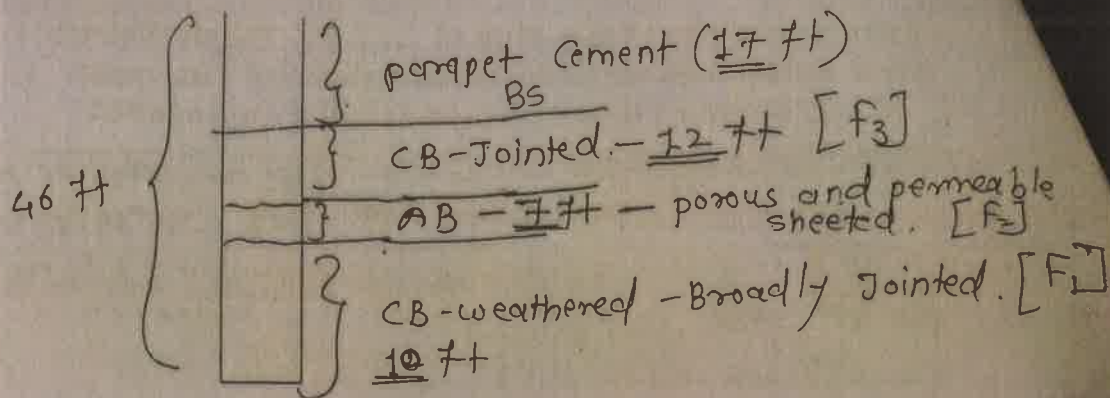 parapet Cement (17 ft)
BS
CB-Jointed. - 12 ft [F3]
46 ft
AB - 7 ft - porous and permeable
sheeted. [F2]
CB-weathered - Broadly Jointed. [F1]
10 ft